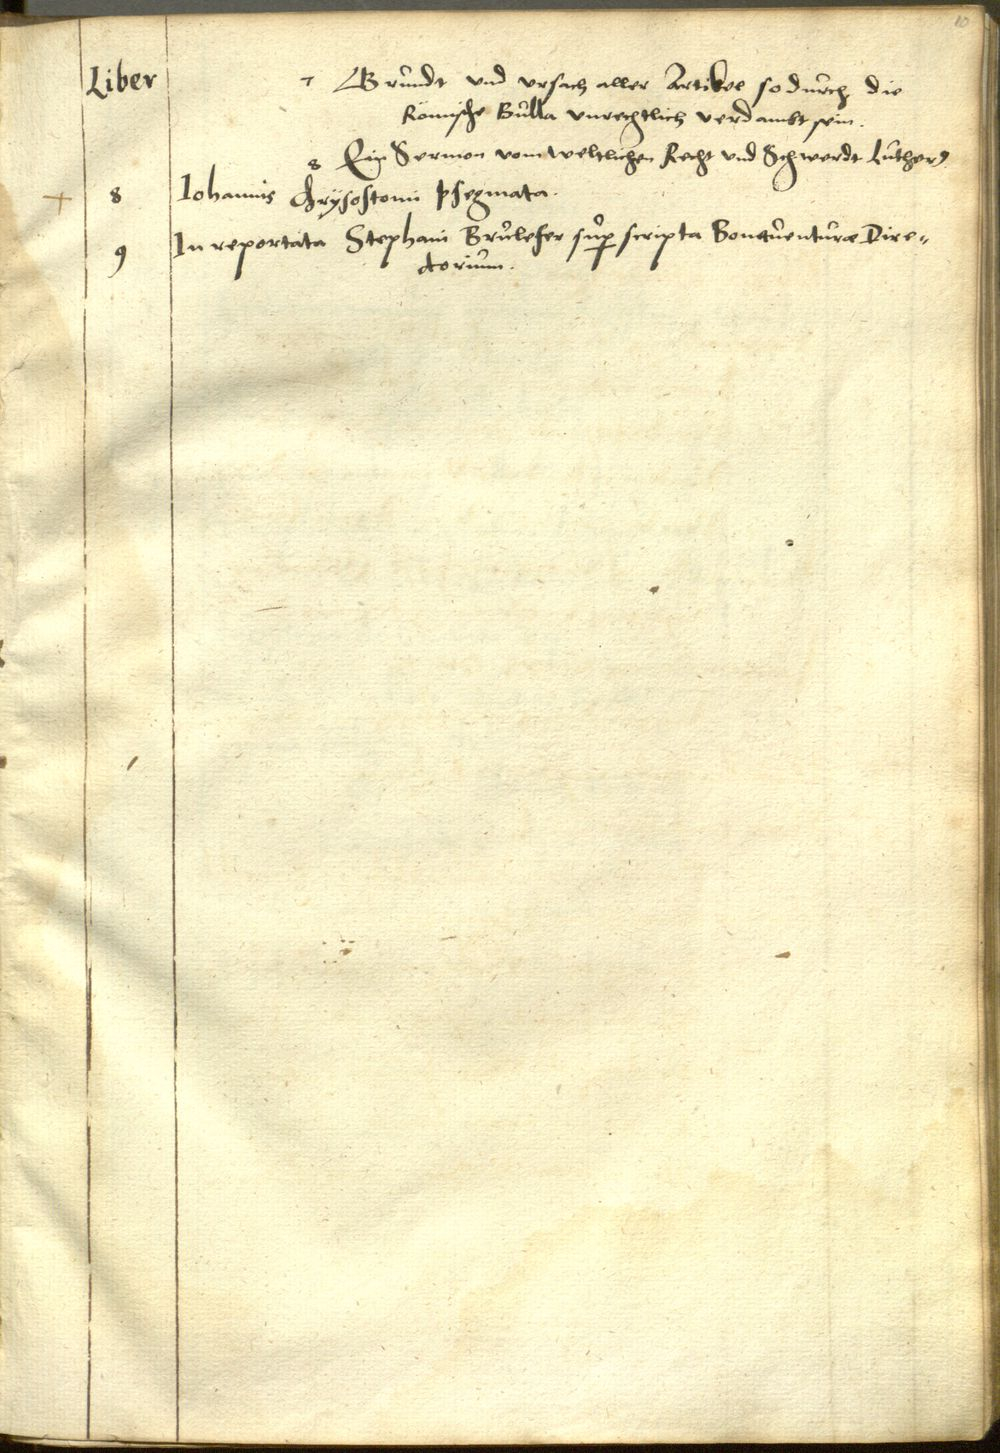 10
Liber
7 Grundt und ursach aller Artikel so durch die
Römische Bulla unrechtlich verdambt sein.
8 Ein Sermon vom weltlichen Recht und Schwerdt Lutherj
+ 8 Iohannis Chrysostomi psegmata.
9 In reportata Stephani Brulefer sup scripta Bonaventuræ Dire-
ctorium.